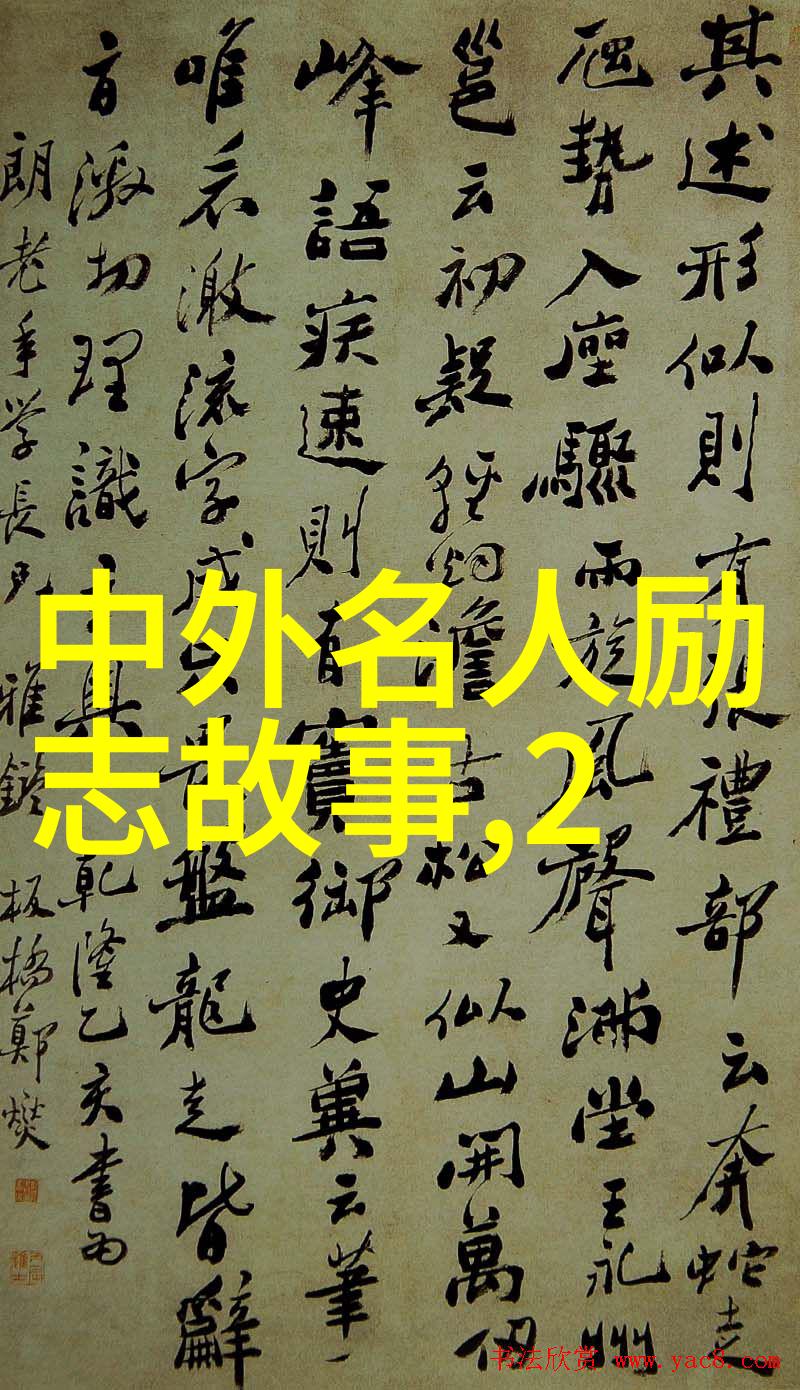 中外名人励
志故事,2
其述形似則有張禮部云奔蛇走
虺勢入座驟雨旋風聲滿堂王永州
邕云初疑輕烟澹古松又似山開萬仞
峰語疾速則有竇御史冀云筆一
唯看激流字成只畏盤龍走皆辭
旨激切理識玄奧乾隆乙亥書為
朗老年學長兄雅鑒板橋鄭燮
书法欣赏 www.yac8.com